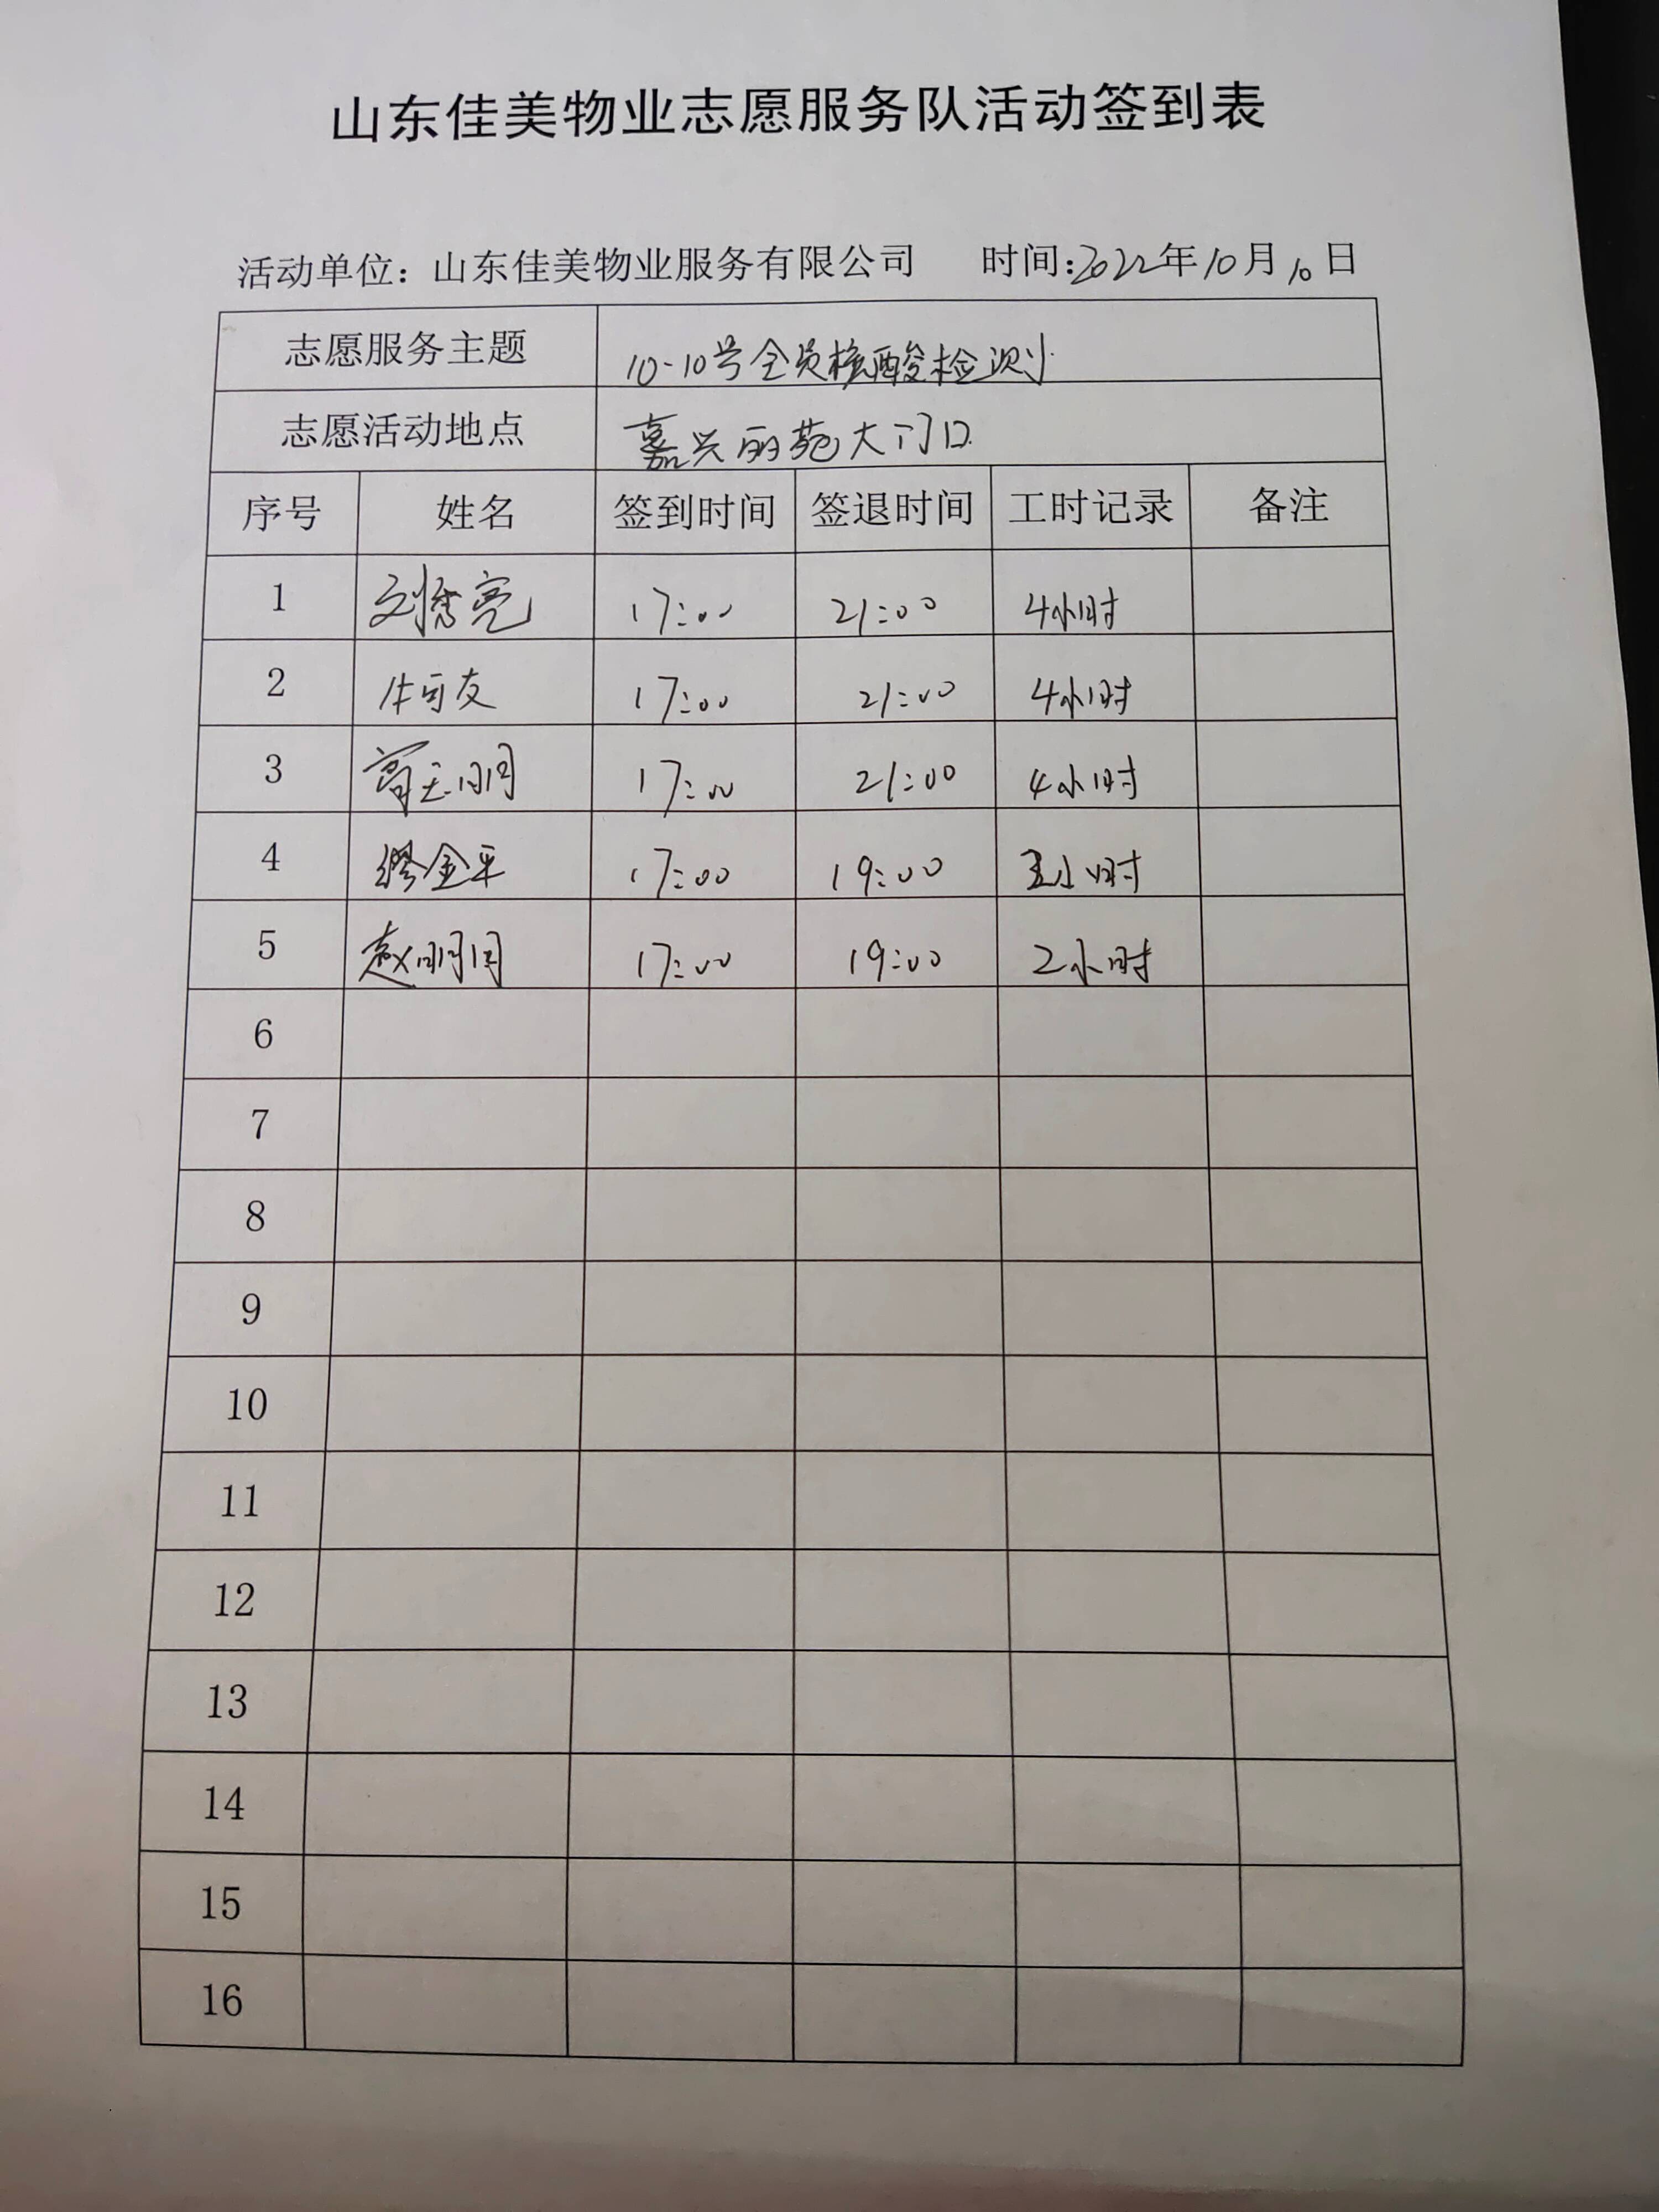 山东佳美物业志愿服务队活动签到表
活动单位：山东佳美物业服务有限公司 时间：2022年10月10日
志愿服务主题 10-10号全员核酸检测
志愿活动地点 嘉兴丽苑大门口
序号 姓名 签到时间 签退时间 工时记录 备注
1 刘秀亮 17:00 21:00 4小时
2 牛可友 17:00 21:00 4小时
3 17:00 21:00 4小时
4 缪金平 17:00 19:00 小时
5 赵明月 17:00 19:00 2小时
6
7
8
9
10
11
12
13
14
15
16